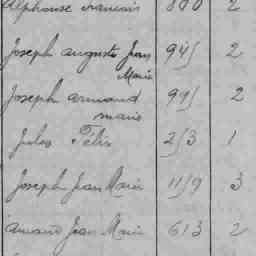 Alphonse François 800 2
Joseph Auguste Jean 945 2
Marie
Joseph Armand 2
Marie
Jules Félix 253 1
Joseph Jean Marie 1159 3
Armand Jean Marie 613 2